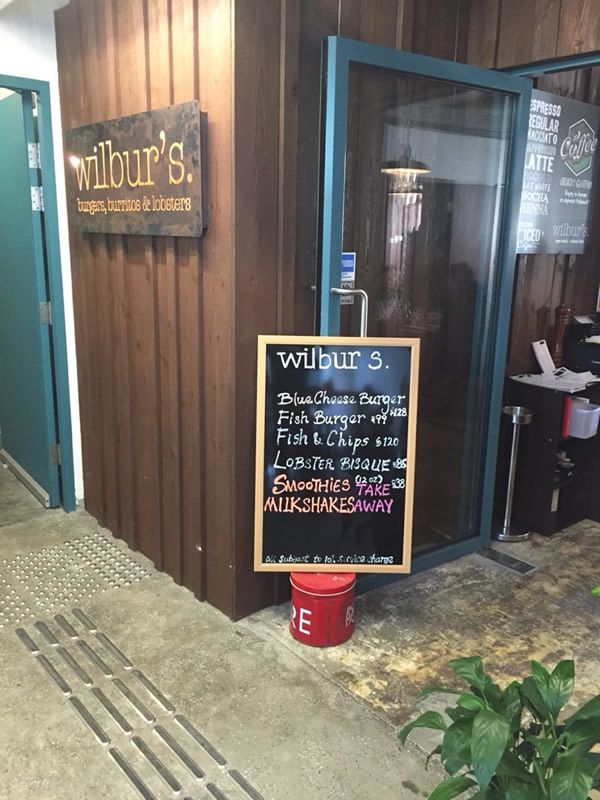 wilbur's.
burgers, burritos & lobsters
ESPRESSO
REGULAR
MACCIATO
LATTE
MOCHA
VIENNA
ICED
Coffee
wilbur's.
wilbur s.
Blue Cheese Burger $128
Fish Burger $99
Fish & Chips $120
LOBSTER BISQUE $85
SMOOTHIES (12 oz) $38
MILKSHAKES TAKE AWAY
all subject to 10% service charge
RE